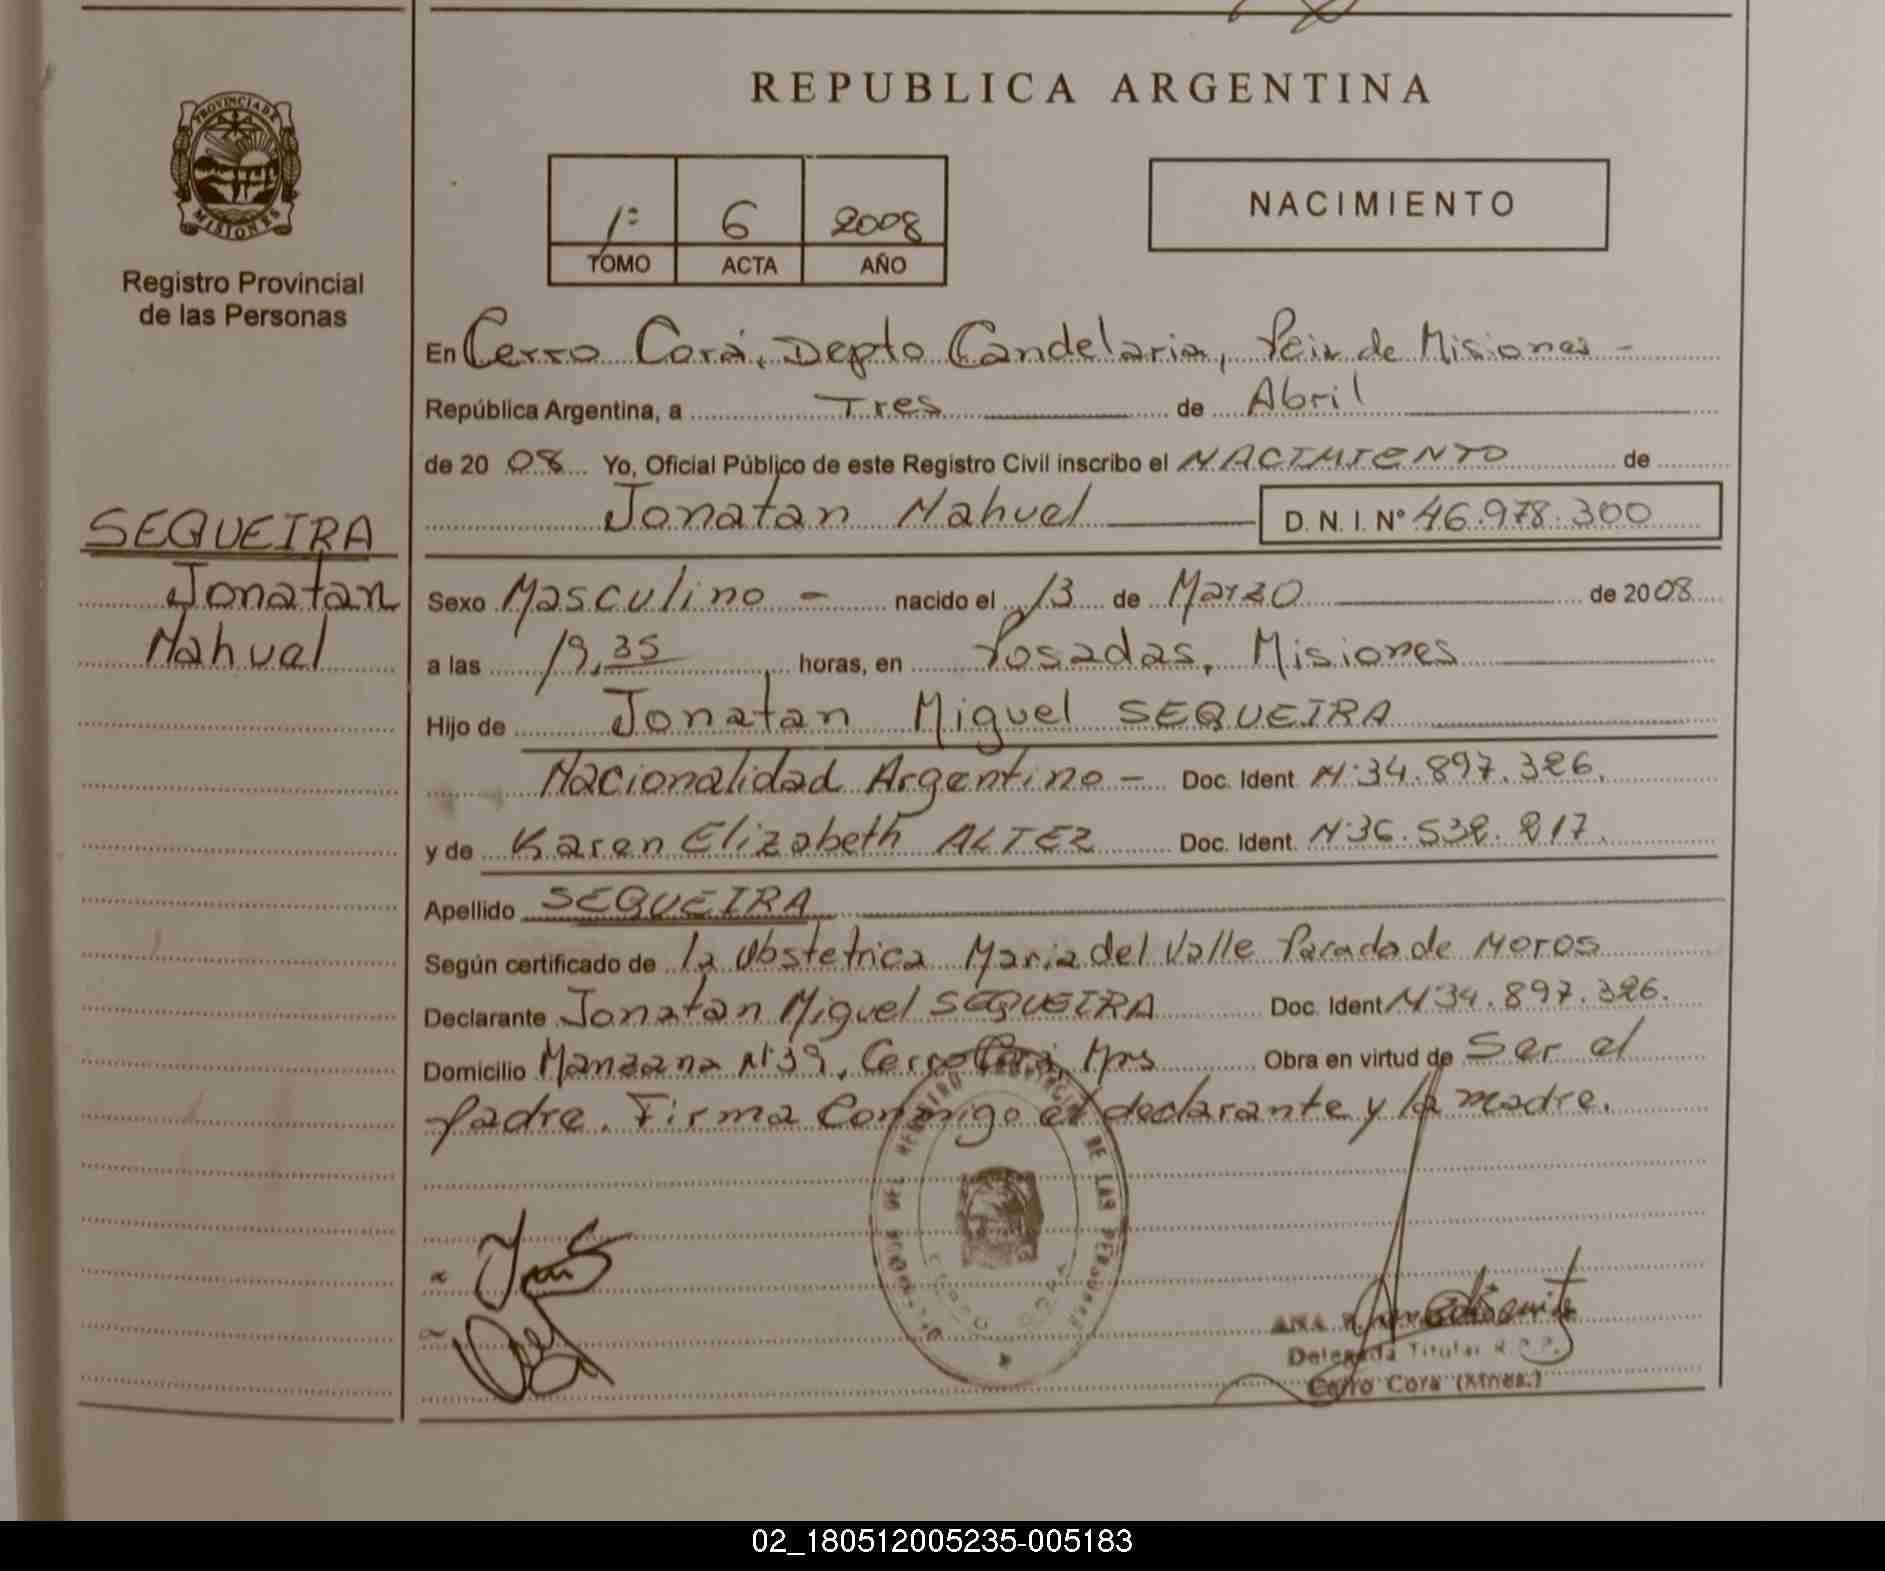 REPUBLICA ARGENTINA
PROVINCIA DE
MISIONES
Registro Provincial
de las Personas
1º 6 2008
TOMO ACTA AÑO
NACIMIENTO
En Cerro Corá, Depto Candelaria, Pcia de Misiones -
República Argentina, a Tres de Abril
de 20 08 Yo, Oficial Público de este Registro Civil inscribo el NACIMIENTO de
Jonatan Nahuel D. N. I. Nº 46.978.300
SEQUEIRA
Jonatan
Nahuel
Sexo Masculino - nacido el 13 de Marzo de 2008
a las 19,35 horas, en Posadas, Misiones
Hijo de Jonatan Miguel SEQUEIRA
Nacionalidad Argentino - Doc. Ident Nº 34.897.326.
y de Karen Elizabeth ALTEZ Doc. Ident. Nº 36.532.217.
Apellido SEQUEIRA
Según certificado de la Obstetrica Maria del Valle Parada de Moros
Declarante Jonatan Miguel SEQUEIRA Doc. Ident Nº 34.897.326.
Domicilio Manzana Nº 39, Cerro Corá, Mns Obra en virtud de Ser el
padre. Firma Conmigo el declarante y la madre.
REGISTRO PROVINCIAL DE LAS PERSONAS
CERRO CORA
ANA
Delegada Titular R.P.P.
Cerro Cora (Mnes.)
02_180512005235-005183